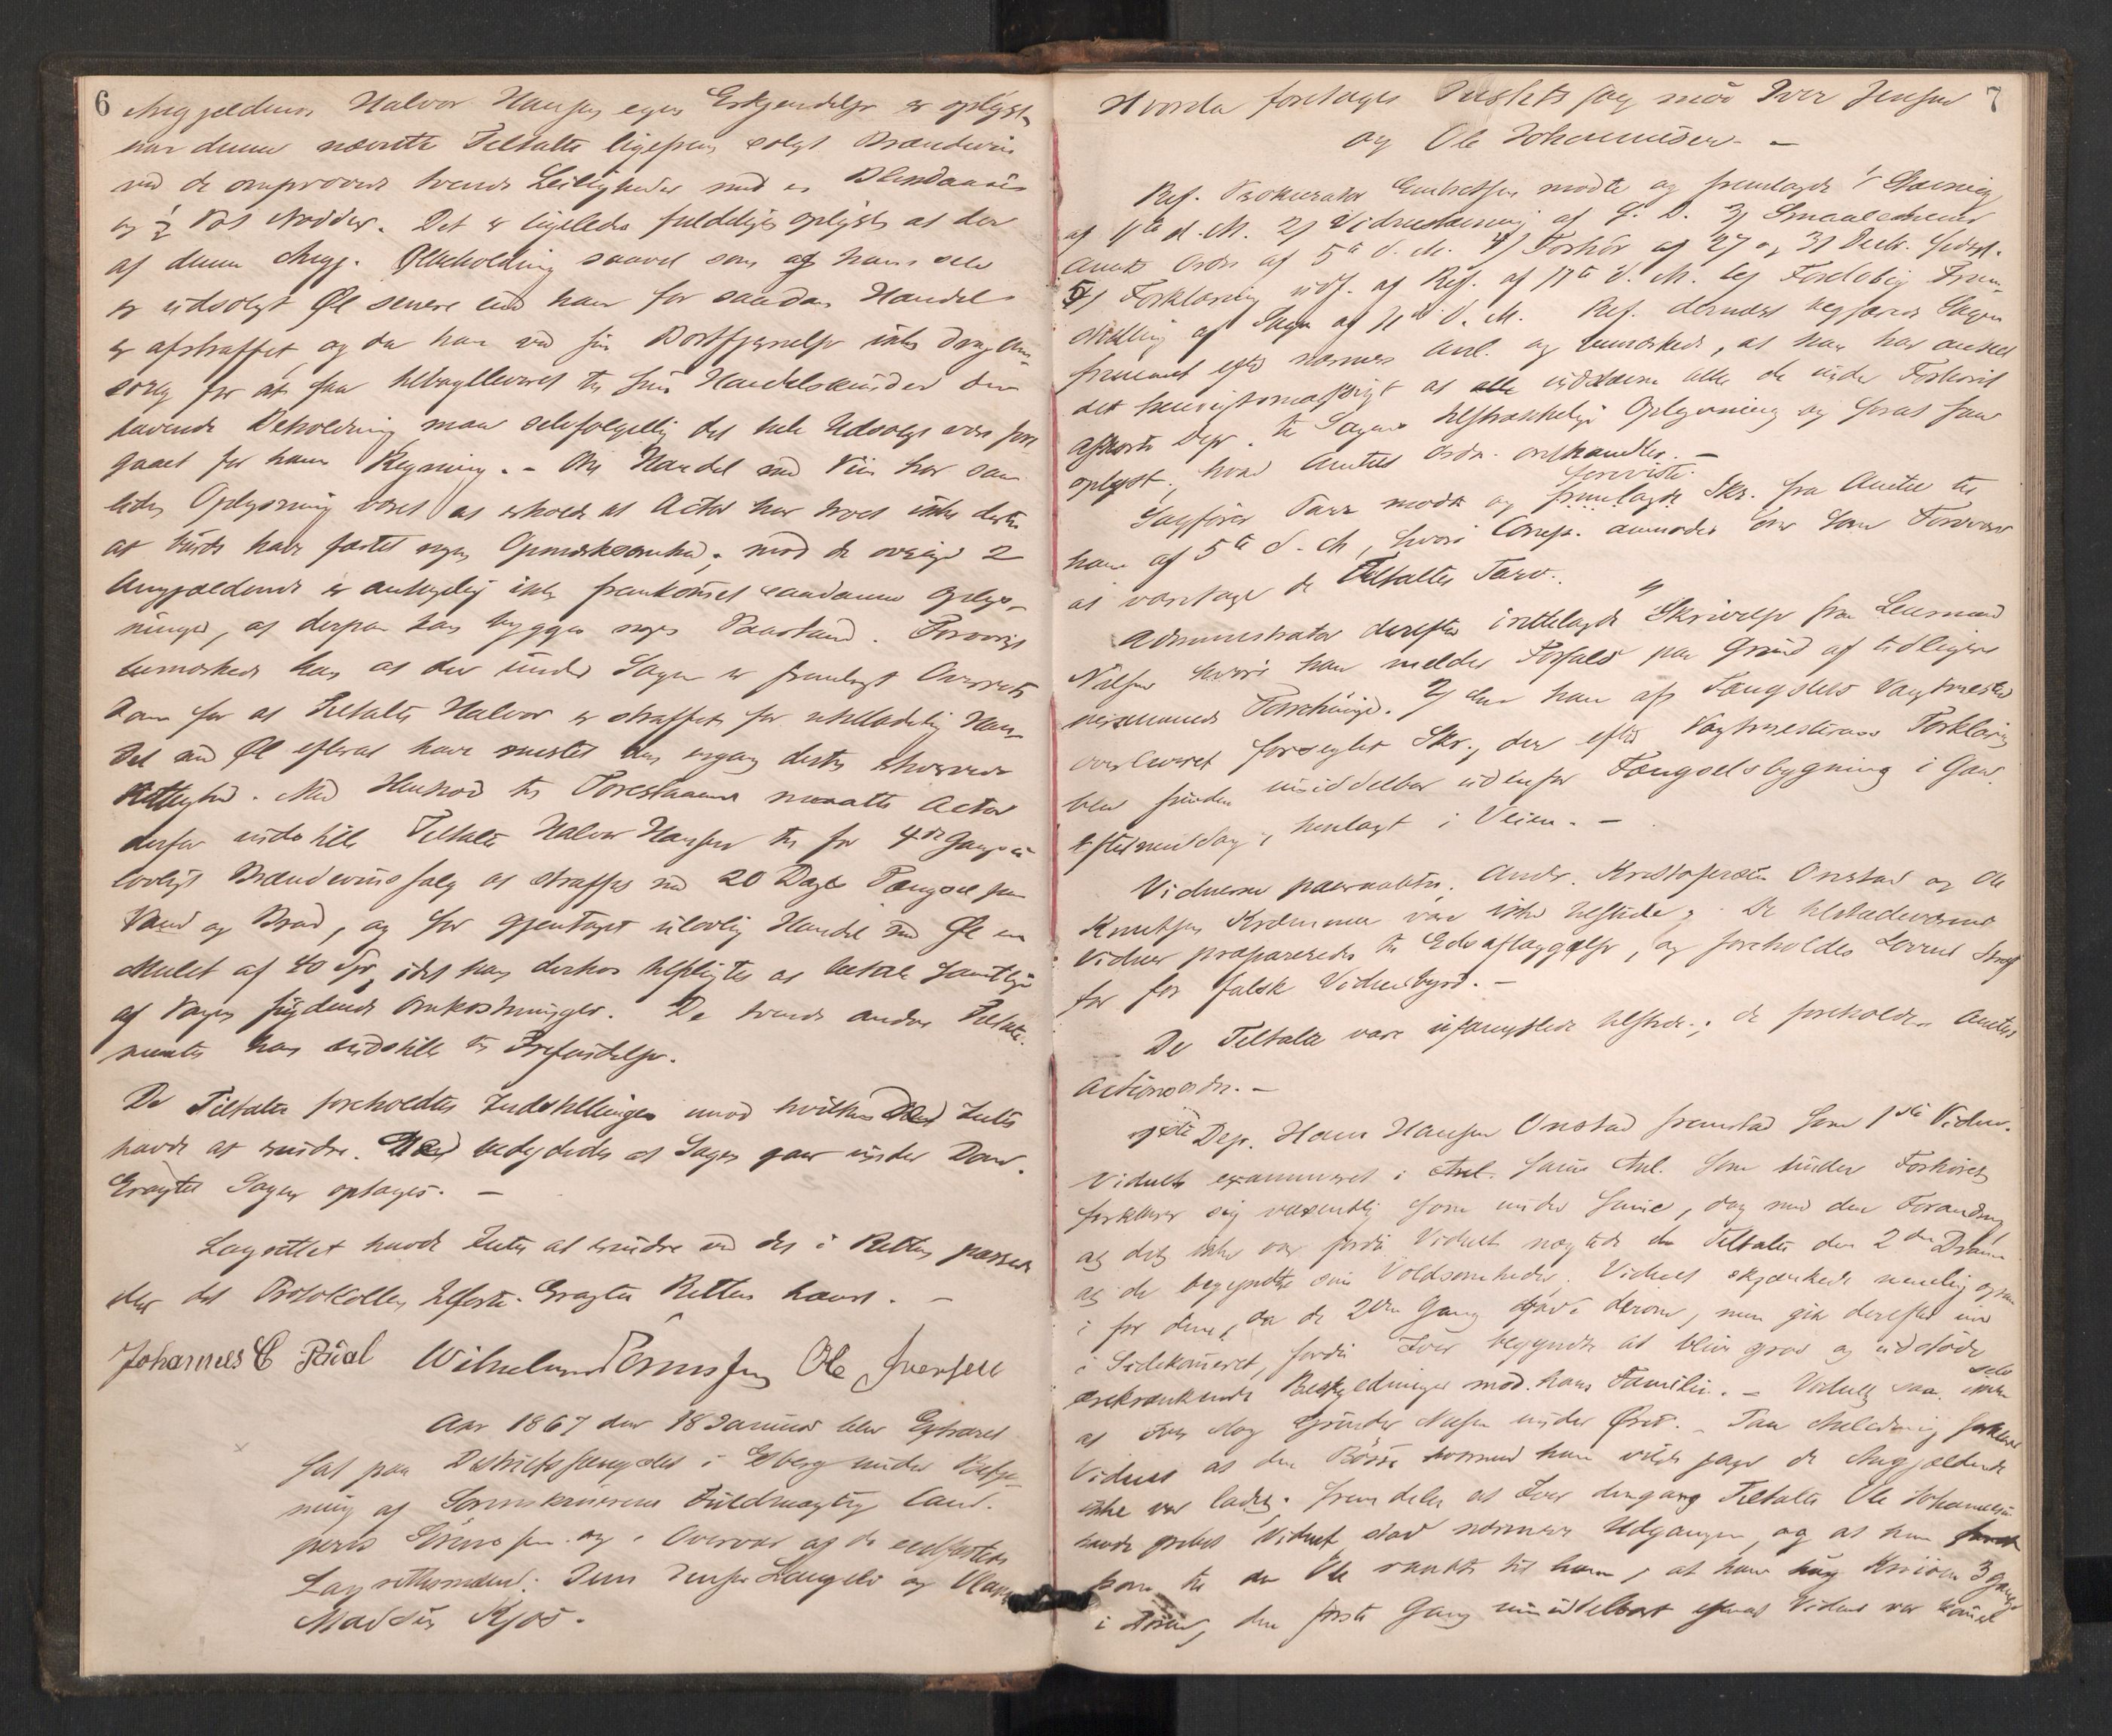 6
Angjeldende Halvor Hansens egen Erkjendelse er oplyst,
har denne nævnte Tiltalte ligesaa solgt Brændeviin
ved de omprovede tvende Leiligheder med
og ½ Pot Nødder. Det er ligeledes fuldeligen oplyst at der
af denne Angj. Ølbeholdning saavel som af ham selv
er udsolgt Øl senere end han for saadan Handel
er afstraffet, og da han ved sin Bortfjernelse ikke drog Om-
sorg for at faa tilbagelevert til sine Handelskunder den
havende Beholdning maa selvfølgelig det hele Udsalg være fore
gaaet for hans Regning. - Om Handel med Viin har saa
liden Oplysning været at erholde at Actor har troet ikke derpaa
at burde have fæstet nogen Opmærksomhed; mod de øvrige 2
Angjældende er antagelig ikke fremkommet saadanne Oplys-
ninger, at derpaa kan bygges nogen Paastand. Forøvrigt
bemærkede han at der under Sagen er fremlagt Overrets
Dom for at Tiltalte Halvor er straffet for utilladelig Han-
del med Øl efterat have mistet den engang dertil erhvervede
Rettighed. Med Henhold til Forestaaende maatte Actor
derfor indstille Tiltalte Halvor Hansen til for 4de Gang u-
lovligt Brændeviinssalg at straffes med 20 Dages Fængsel paa
Vand og Brød, og for gjentaget ulovlig Handel med Øl en
Mulct af 40 Spd, idet han derhos tilpligtes at betale samtlige
af Sagen flydende Omkostninger. De tvende andre Tiltalte
maatte han indstille til Frifindelse.
De Tiltalte foreholdtes Indstillingen mod hvilken de Intet
havde at erindre. Med betydedes at Sagen gaar under Dom.
Eragtet Sagen optages. -
Lagrettet havde Intet at erindre ved det i Retten passerede
eller det Protokollen tilførte. Eragtet Retten hævet. -
Johannes C Paual Wilhelm Tønnesen Ole Iversen
Aar 1867 den 18 Januar blev Extraret
sat paa Districtsfængslet i Eberg under Betje-
ning af Sorenskriverens Fuldmægtig Cand.
juris Sørenssen og i Overvær af de eedfæstede
Lagrettesmænd: Jens Jensen Langeli og
Madsen Kjos.
7
Hvorda foretages Justitssag mod Iver Jensen
og Ole Johannesen. -
Ref. Prokurator Gulbransen mødte og fremlagde 1) Stævning
af 11te d. M. 2) Vidnestævning af s. D. 3) Smaalehnenes
Amts Ordre af 5te d. M. 4) Forhør af 27 og 31 Decb. sidstl.
5) Forklaring udf. af Ref. af 17te d. M. 6) Foreløbig Frem-
stilling af Sagen af 11te d. M. Ref. dernæst begjærede Sagen
fremmet efter nærmere Anl. og bemærkede, at han har anseet
det hensigtsmæssigt at indstævne alle de under Forhøret
afhørte Dep. til Sagens tilstrækkelige Oplysning og forat faa
oplyst, hvad Amtets Ordre omhandler. -
foreviste
Sagfører Parr mødte og fremlagde Skr. fra Amtet til
ham af 5te d. M, hvori Comp. anmodes om som Forsvarer
at varetage de Tiltaltes Tarv.
Administrator derefter irettelagde 1) Skrivelse fra Lensmand
Nilsen hvori han melder Forfald paa Grund af tidligere
berammede Forretninger. 2) den ham af Fængslets Vagtmester
overleveret forseglet Skr., der efter Vagtmesterens Forklaring
blev funden umiddelbar udenfor Fængselsbygning i Gaar
Eftermiddag, henlagt i Veien. -
Vidnerne paaraabtes. Andr. Kristofersen Onstad og Ole
Knutsen Kræmmer var ikke tilstede; De tilstedeværende
Vidner præpareredes til Edsaflæggelse, og foreholdes Lovens Straf
for for falsk Vidnesbyrd. -
De Tiltalte vare ufængslede tilstede; de foreholdes Amtets
Actionsordre. -
7de Dep. Hans Hansen Onstad fremstod som 1ste Vidne.
Vidnet examineret i Anl. samme Anl. som under Forhøret
forklarer sig væsentlig som under samme, dog med den Forandring
at det ikke var fordi Vidnet nægtede de Tiltalte den 2den Dram
at de begyndte sine Voldsomheder. Vidnet skjænkede nemlig ogsaa
i for dem, da de 2den Gang bad derom, men gik derefter ind
i Sidekammeret, fordi Iver begyndte at blive grov og udstødte
selv
ærekrænkende Beskyldninger mod hans Familie. - Vidnet saa ikke
at Iver slog Grunder Nilsen under Øret. - Paa Anledning forklarer
Vidnet at den Bøsse hvormed han vilde jage de Angjeldende
ikke var ladet. fremdeles at Iver dengang Tiltalte Ole Johannesen
havde grebet Vidnet stod nærmere Udgangen, og at han
kom til da Ole rankte til ham, at han hug Kniven 3 Gange
i Døren, den første Gang umiddelbart efterat Vidnet var kommet